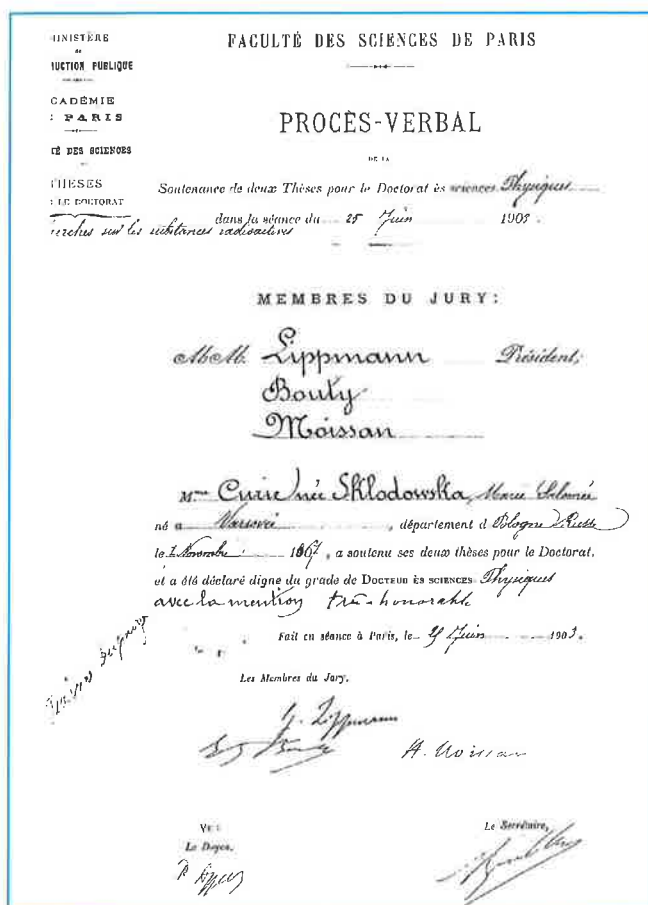 INISTÈRE
de
UCTION PUBLIQUE
CADÉMIE
PARIS
TÉ DES SCIENCES
THÈSES
LE DOCTORAT
FACULTÉ DES SCIENCES DE PARIS
PROCÈS-VERBAL
DE LA
Soutenance de deux Thèses pour le Doctorat ès sciences Physiques
dans la séance du 25 Juin 1903.
erches sur les substances radioactives
MEMBRES DU JURY:
MM. Lippmann Président,
Bouty
Moissan
Mme Curie née Sklodowska, Marie Salomée
né à Varsovie, département d Pologne Russe
le 7 Novembre 1867, a soutenu ses deux thèses pour le Doctorat,
et a été déclaré digne du grade de DOCTEUR ÈS SCIENCES Physiques
avec la mention très-honorable
Fait en séance à Paris, le 25 Juin 1903.
Les Membres du Jury,
G. Lippmann
H. Moissan
Vu:
Le Doyen,
Le Secrétaire,